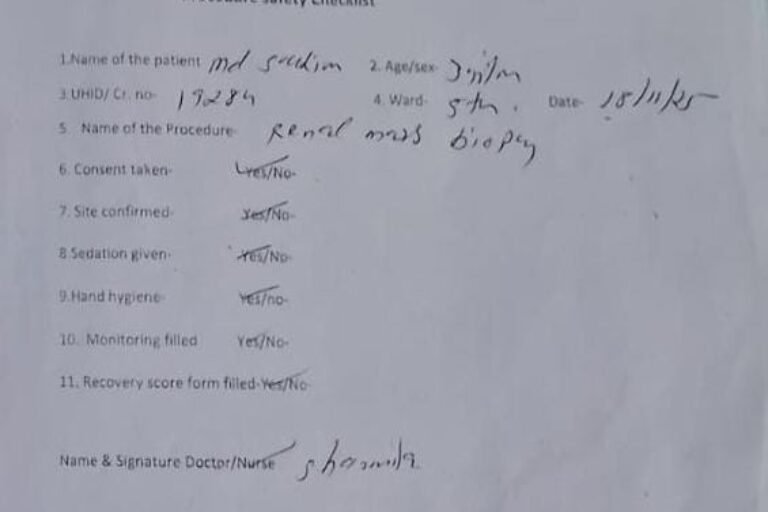 Procedure Safety Checklist
1.Name of the patient md 2. Age/sex-
3.UHID/ Cr. no- 19284 4. Ward- 5th. Date- 18/11/25
5. Name of the Procedure- Renal mass biopsy
6. Consent taken- Yes/No-
7. Site confirmed- Yes/No-
8.Sedation given- Yes/No-
9.Hand hygiene- Yes/no-
10. Monitoring filled Yes/No-
11. Recovery score form filled-Yes/No-
Name & Signature Doctor/Nurse sharmila